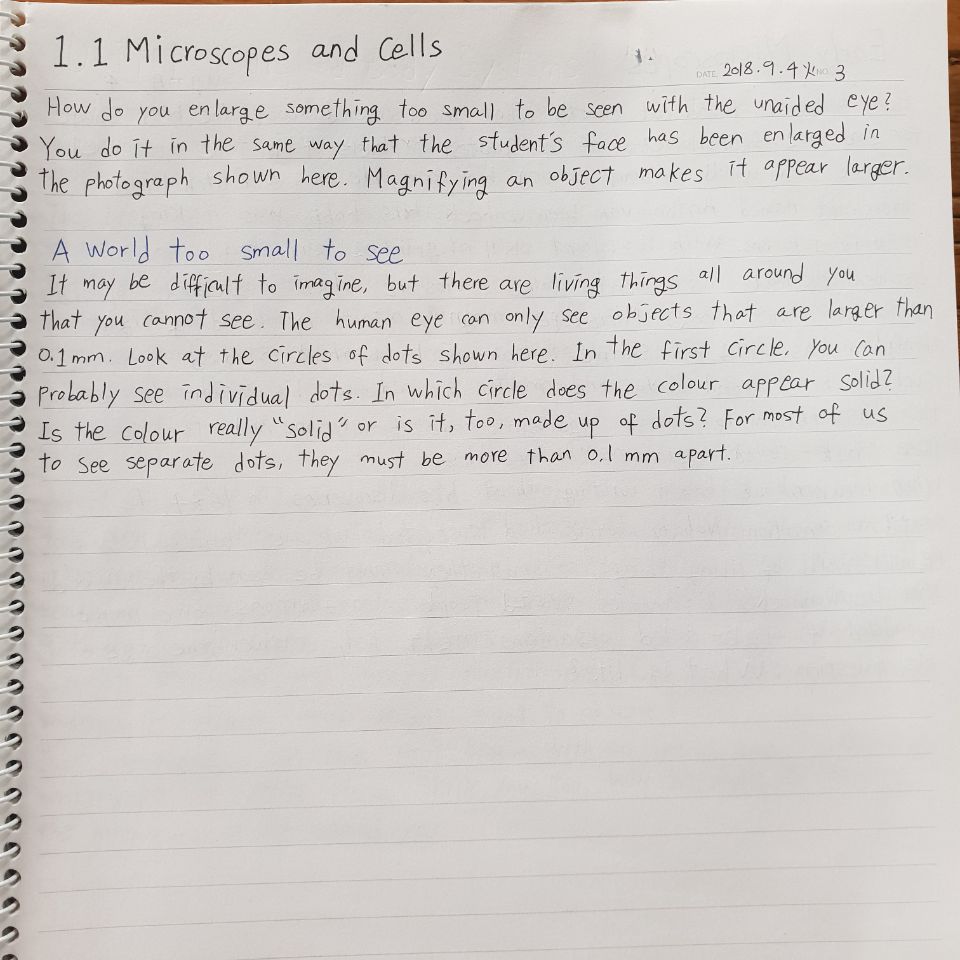 1.1 Microscopes and Cells
DATE 2018.9.4 火 NO. 3
How do you enlarge something too small to be seen with the unaided eye?
You do it in the same way that the student's face has been enlarged in
the photograph shown here. Magnifying an object makes it appear larger.
A World too small to see
It may be difficult to imagine, but there are living things all around you
that you cannot see. The human eye can only see objects that are larger than
0.1mm. Look at the circles of dots shown here. In the first circle, you can
probably see individual dots. In which circle does the colour appear solid?
Is the colour really "solid" or is it, too, made up of dots? For most of us
to see separate dots, they must be more than 0.1 mm apart.